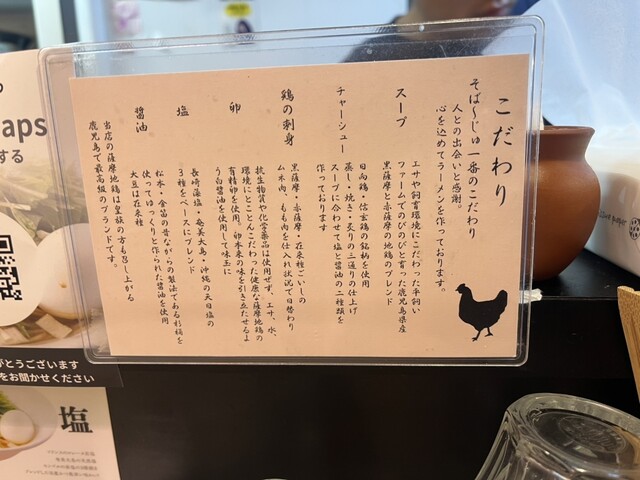 こだわり
そば〜じゅ一番のこだわり
人との出会いと感謝。
心を込めてラーメンを作っております。
スープ
エサや飼育環境にこだわった平飼い
ファームでのびのびと育った鹿児島県産
黒薩摩と赤薩摩の地鶏のブレンド
チャーシュー
日向鶏・信玄鶏の銘柄を使用
蒸し・焼き・炙りの三通りの仕上げ
スープに合わせて塩と醤油の二種類を
作っております
鶏の刺身
黒薩摩・赤薩摩・在来種ごいしの
ムネ肉、もも肉を仕入れ状況で日替わり
卵
抗生物質や化学薬品は使用せず、エサ、水、
環境にとことんこだわった健康な薩摩地鶏の
有精卵を使用。卵本来の味を引き立たせるよ
う白醤油を使用して味玉に
塩
長崎藻塩・奄美大島・沖縄の天日塩の
3種をベースにブレンド
醤油
松本・金品の昔ながらの製法である杉桶を
使ってゆっくりと作られた醤油を使用
大豆は在来種
当店の薩摩地鶏は皇族の方も召し上がる
鹿児島で最高級のブランドです。
aps
する
がとうございます
をお聞かせください
塩